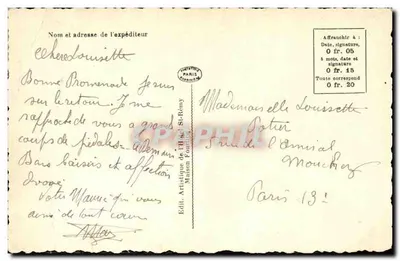 Nom et adresse de l'expéditeur
Chère Louisette
Bonne Promenade je suis
sur le retour. Je me
rapproche de vous a grand
coups de pédales
Bons baisers et affection
Votre qui vous
aime de tout cœur
PARIS
Edit. Artistique de St-Rémy
Maison
Affranchir à :
Date, signature,
0 fr. 05
5 mots, date et
signature
0 fr. 15
Toute correspond
0 fr. 20
Mademoiselle Louisette
Potier
rue de l'amiral
Mouchez
Paris 13e